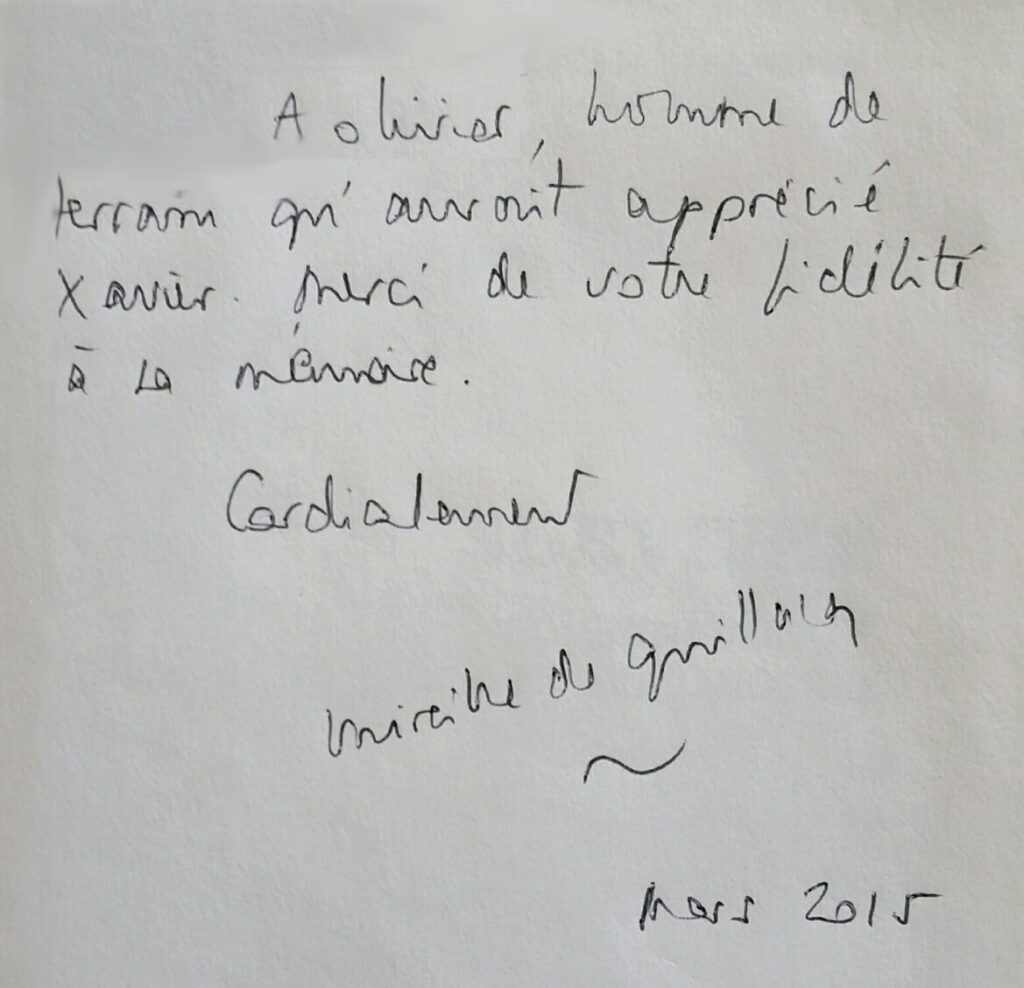 A Olivier, homme de
terrain qu'aurait apprécié
Xavier. Merci de votre fidélité
à la mémoire.
Cordialement
Mireille de
Mars 2015